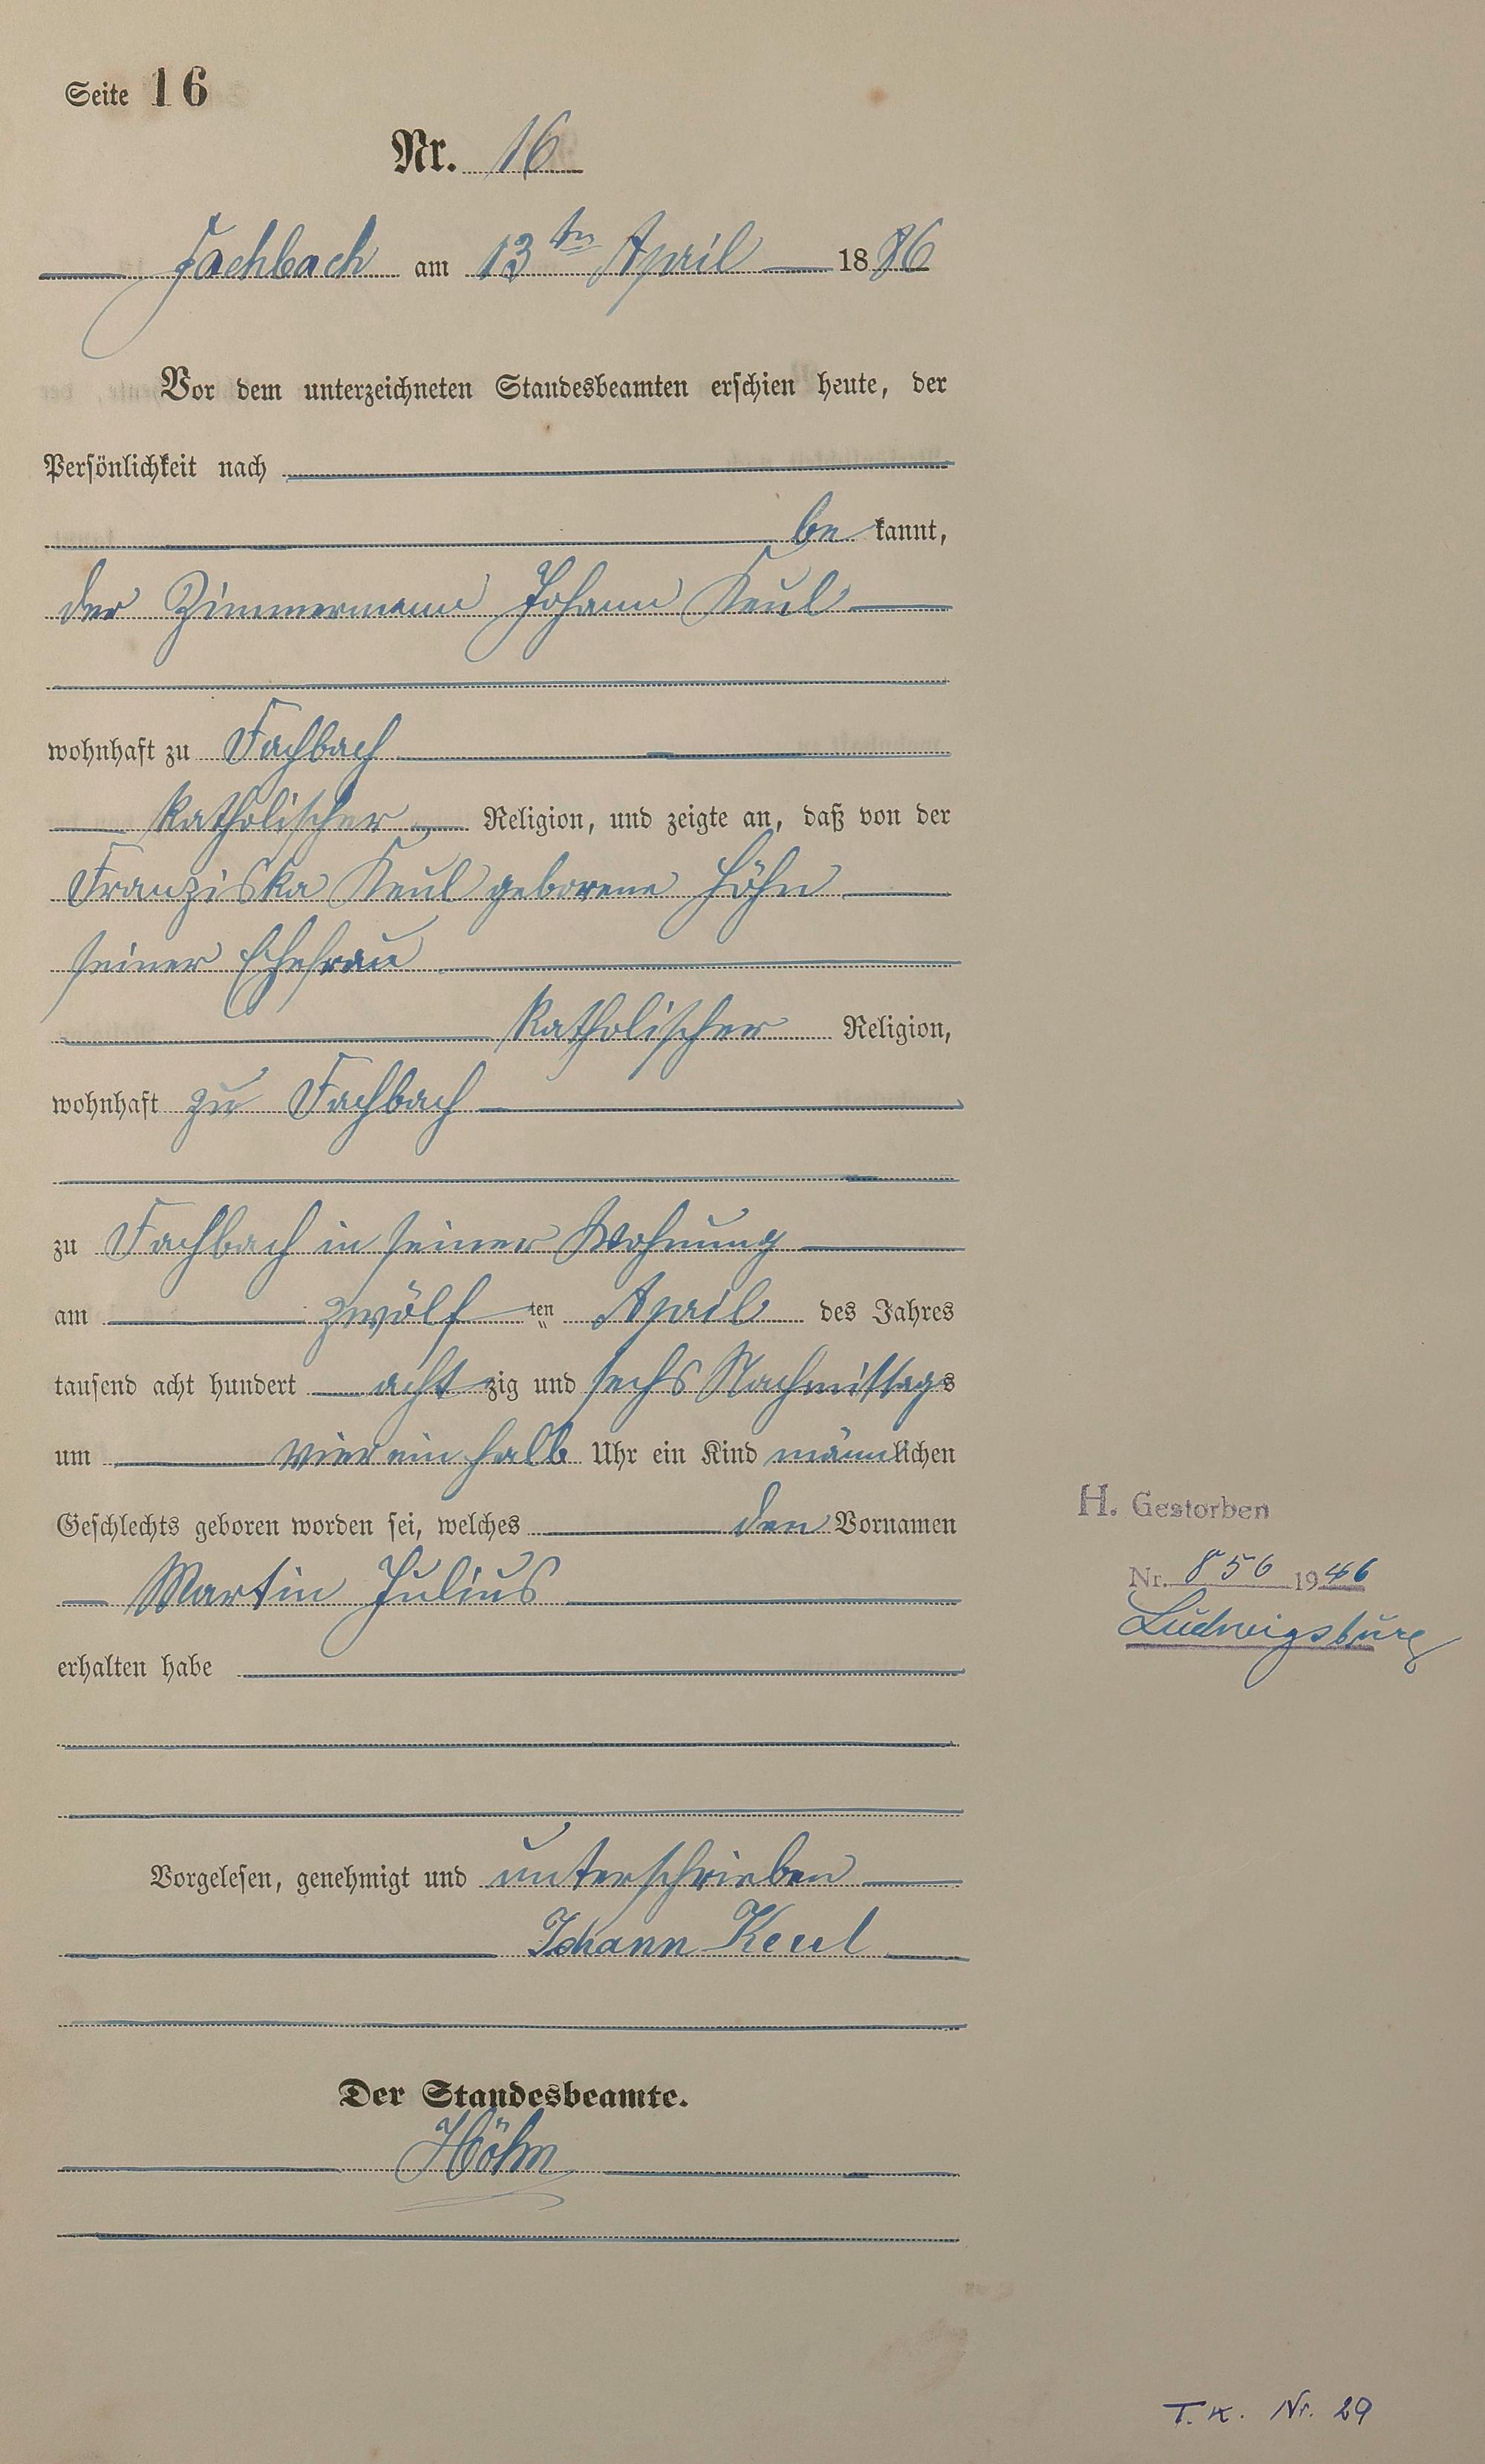 Seite 16
Nr. 16
Fachbach am 13ten April 1886
Vor dem unterzeichneten Standesbeamten erschien heute, der
Persönlichkeit nach
be kannt,
der Zimmermann Johann Keul
wohnhaft zu Fachbach
katholischer Religion, und zeigte an, daß von der
Franziska Keul geborene Höhn
seiner Ehefrau
katholischer Religion,
wohnhaft zu Fachbach
zu Fachbach in seiner Wohnung
am zwölf ten April des Jahres
tausend acht hundert acht zig und sechs Nachmittags
um vier ein halb Uhr ein Kind männlichen
Geschlechts geboren worden sei, welches den Vornamen
Martin Julius
erhalten habe
H. Gestorben
Nr. 856 1946
Ludwigsburg
Vorgelesen, genehmigt und unterschrieben
Johann Keul
Der Standesbeamte.
Höhn
T. K. Nr. 29